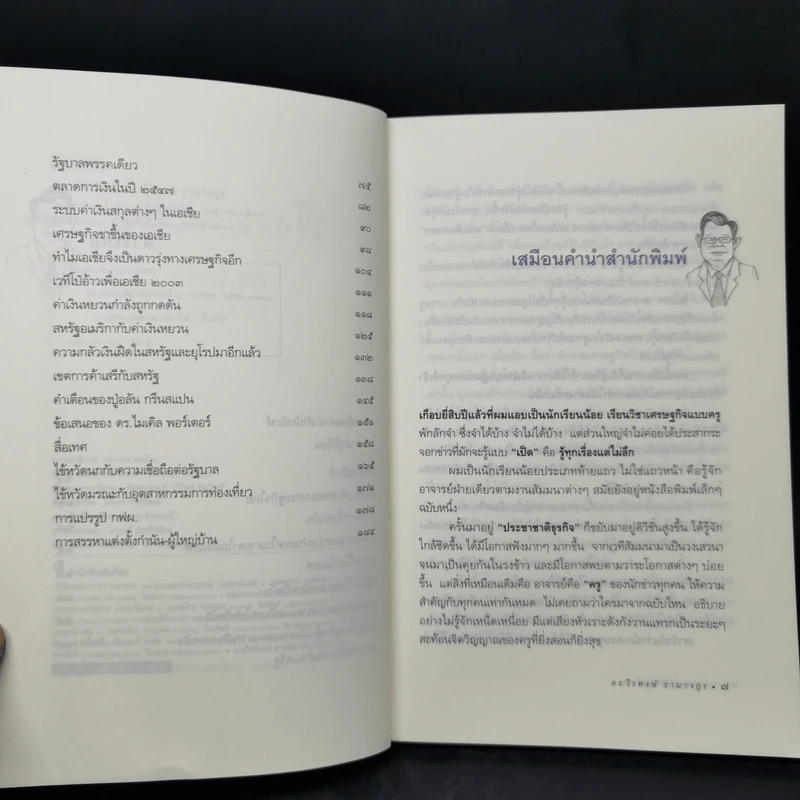 รัฐบาลพรรคเดียว ๗๕
ตลาดการเงินในปี ๒๕๔๗ ๘๒
ระบบค่าเงินสกุลต่างๆ ในเอเชีย ๙๐
เศรษฐกิจขาขึ้นของเอเชีย ๙๘
ทำไมเอเชียจึงเป็นดาวรุ่งทางเศรษฐกิจอีก ๑๐๔
เวทีโป๋อ้าวเพื่อเอเชีย ๒๐๐๓ ๑๑๑
ค่าเงินหยวนกำลังถูกกดดัน ๑๑๘
สหรัฐอเมริกากับค่าเงินหยวน ๑๒๕
ความกลัวเงินฝืดในสหรัฐและยุโรปมาอีกแล้ว ๑๓๒
เขตการค้าเสรีกับสหรัฐ ๑๓๘
คำเตือนของปู่อลัน กรีนสแปน ๑๔๕
ข้อเสนอของ ดร.ไมเคิล พอร์เตอร์ ๑๕๑
สื่อเทศ ๑๕๘
ไข้หวัดนกกับความเชื่อถือต่อรัฐบาล ๑๖๕
ไข้หวัดมรณะกับอุตสาหกรรมการท่องเที่ยว ๑๗๑
การแปรรูป กฟผ. ๑๗๘
การสรรหาแต่งตั้งกำนัน-ผู้ใหญ่บ้าน ๑๘๔
เสมือนคำนำสำนักพิมพ์
เกือบยี่สิบปีแล้วที่ผมแอบเป็นนักเรียนน้อย เรียนวิชาเศรษฐกิจแบบครู
พักลักจำ ซึ่งจำได้บ้าง จำไม่ได้บ้าง แต่ส่วนใหญ่จำไม่ค่อยได้ประสากระ
จอกข่าวที่มักจะรู้แบบ "เป็ด" คือ รู้ทุกเรื่องแต่ไม่ลึก
ผมเป็นนักเรียนน้อยประเภทท้ายแถว ไม่ใช่แถวหน้า คือรู้จัก
อาจารย์ฝ่ายเดียวตามงานสัมมนาต่างๆ สมัยยังอยู่หนังสือพิมพ์เล็กๆ
ฉบับหนึ่ง
ครั้นมาอยู่ "ประชาชาติธุรกิจ" ก็ขยับมาอยู่ดิวิชั่นสูงขึ้น ได้รู้จัก
ใกล้ชิดขึ้น ได้มีโอกาสฟังมากๆ มากขึ้น จากเวทีสัมมนามาเป็นวงเสวนา
จนมาเป็นคุยกันในวงข้าว และมีโอกาสพบตามวาระโอกาสต่างๆ บ่อย
ขึ้น แต่สิ่งที่เหมือนเดิมคือ อาจารย์คือ "ครู" ของนักข่าวทุกคน ให้ความ
สำคัญกับทุกคนเท่ากันหมด ไม่เคยถามว่าใครมาจากฉบับไหน อธิบาย
อย่างไม่รู้จักเหน็ดเหนื่อย มีแต่เสียงหัวเราะดังกังวานแทรกเป็นระยะๆ
สะท้อนจิตวิญญาณของครูที่ยิ่งสอนก็ยิ่งสุข
ดร.วีรพงษ์ รามางกูร • ๗